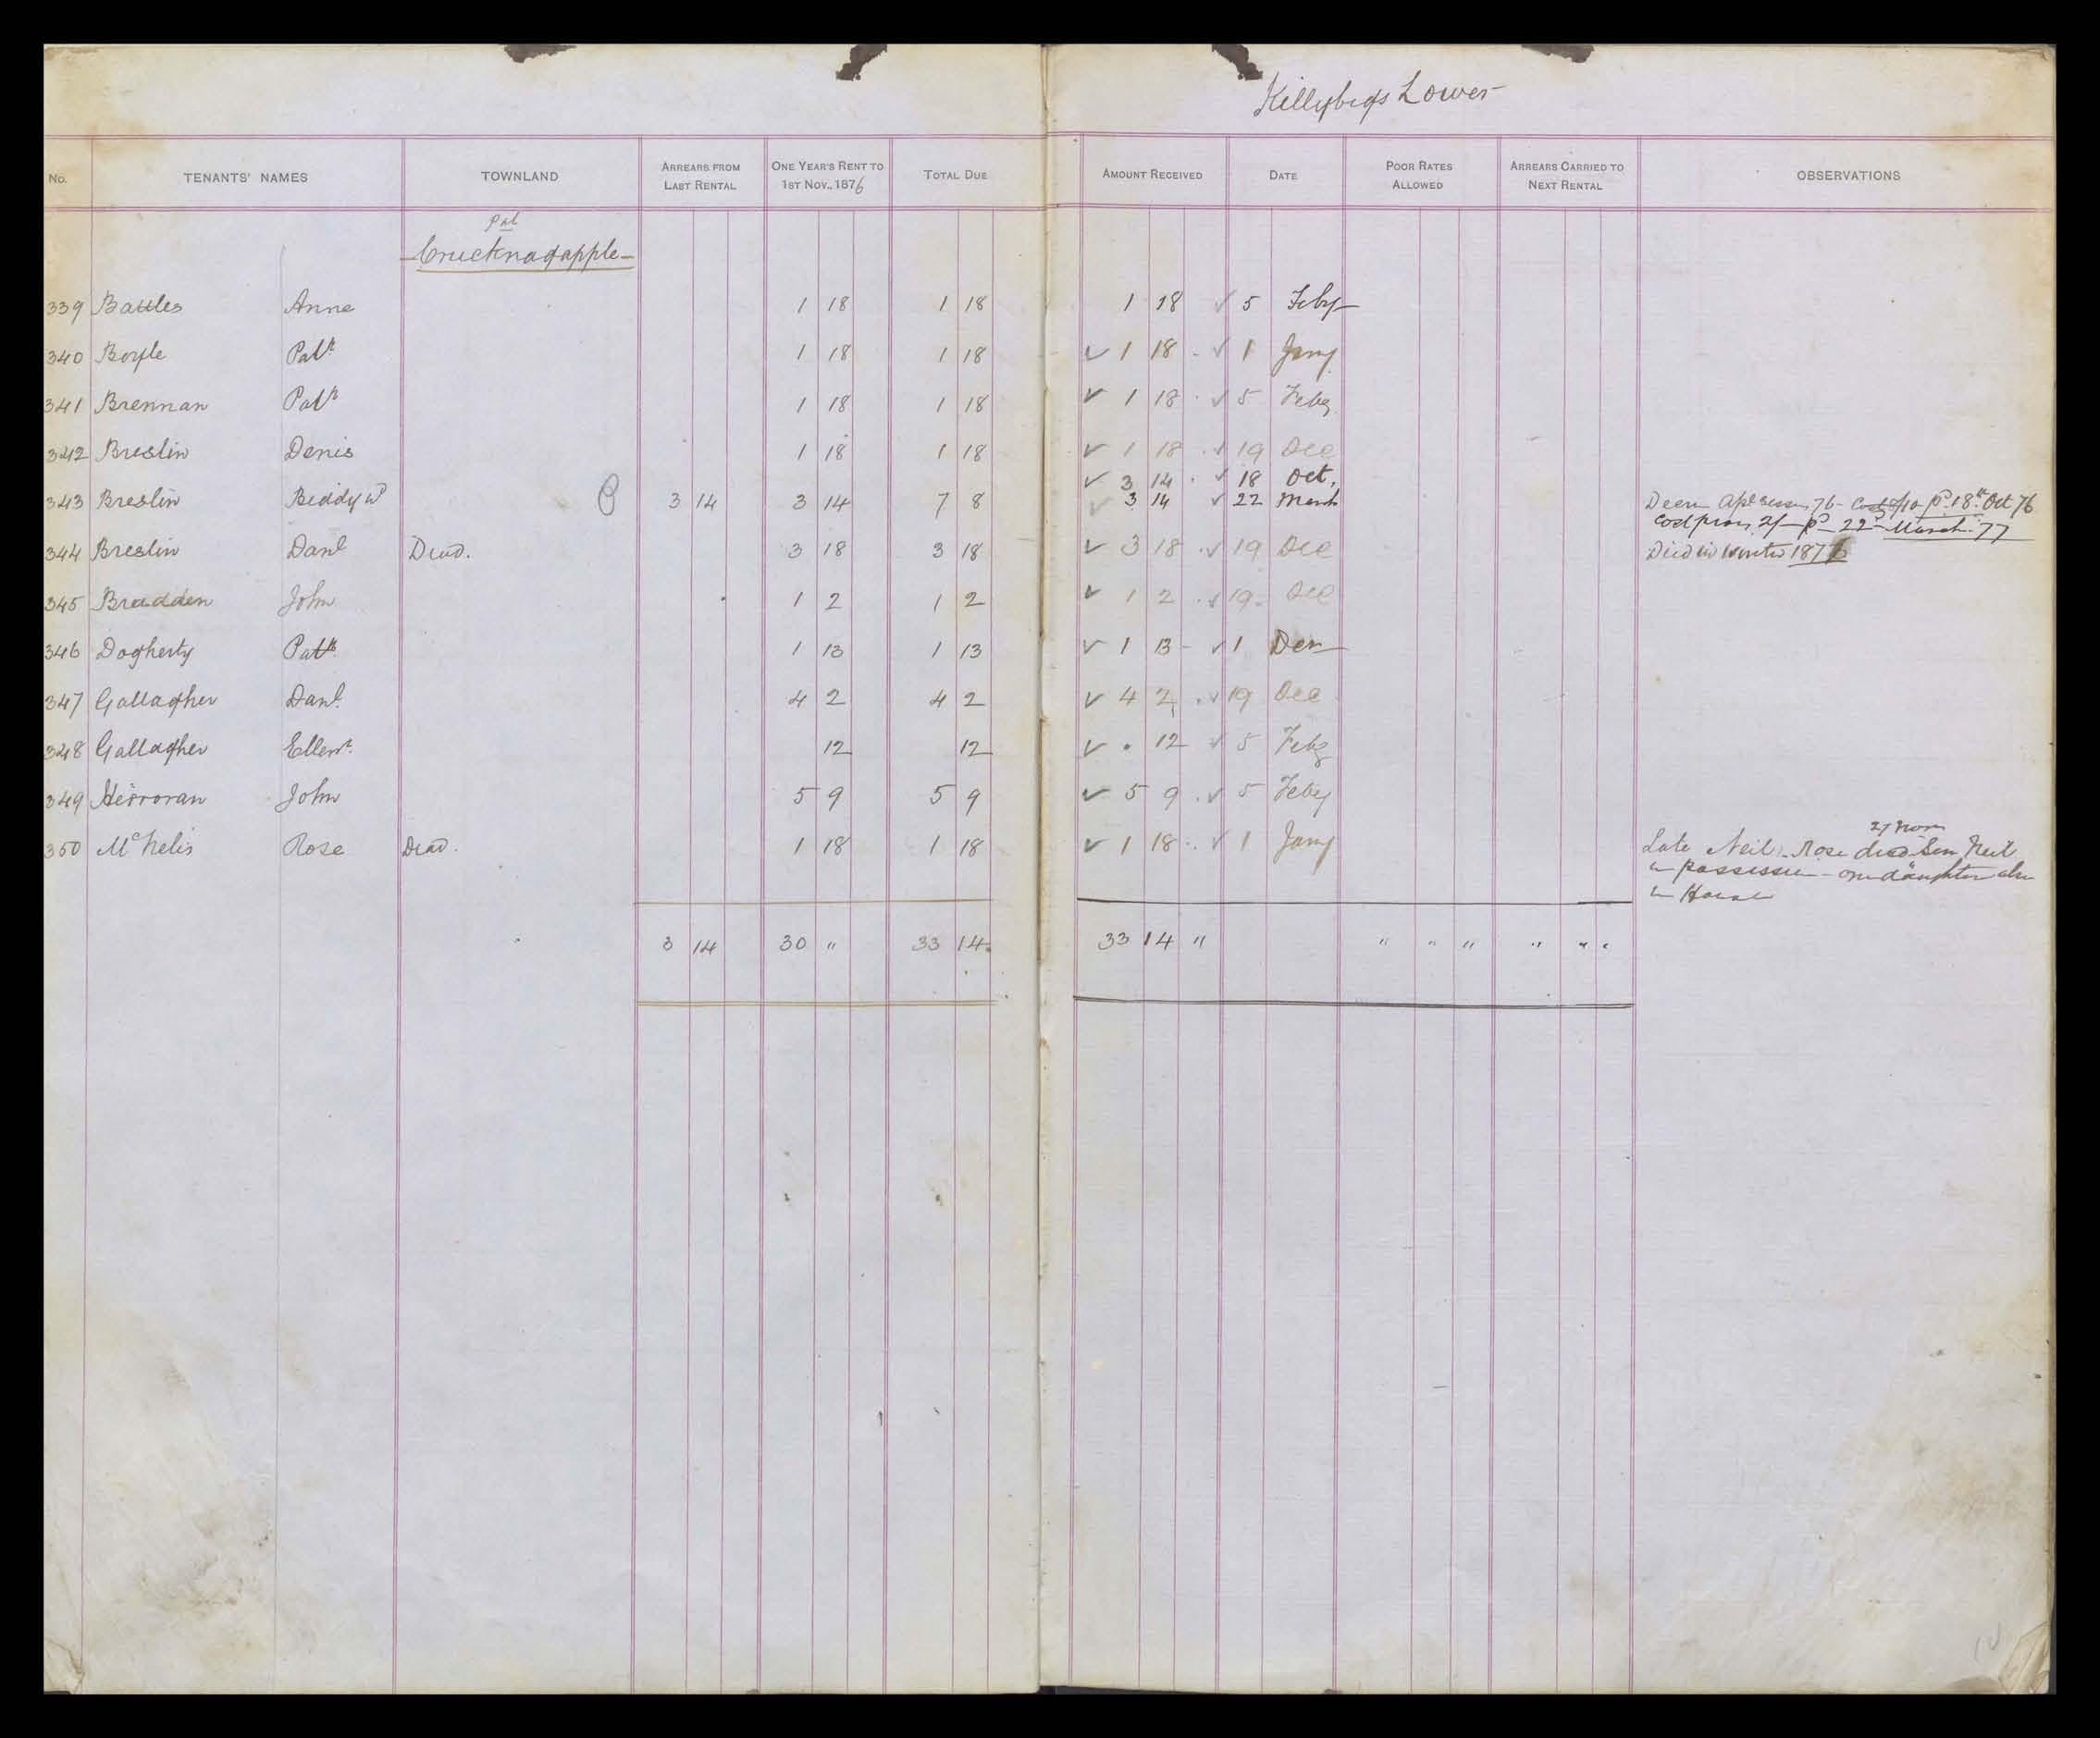 Killybegs Lower
No. TENANTS' NAMES TOWNLAND ARREARS FROM LAST RENTAL ONE YEAR'S RENT TO 1ST NOV., 1876 TOTAL DUE AMOUNT RECEIVED DATE POOR RATES ALLOWED ARREARS CARRIED TO NEXT RENTAL OBSERVATIONS
Crucknagapple
339 Battles Anne 1 18 1 18 1 18 5 Feby
340 Boyle Patk 1 18 1 18 1 18 1 Jany
341 Brennan Patk 1 18 1 18 1 18 5 Feby
342 Breslin Denis 1 18 1 18 1 18 19 Dec
3 14 18 Oct.
343 Breslin Biddy wd 3 14 3 14 7 8 3 14 22 March 76 pd 18th Oct 76
pd 22nd March 77
344 Breslin Danl Dead. 3 18 3 18 3 18 19 Dec Died in winter 1876
345 Bradden John 1 2 1 2 1 2 19 Dec
346 Dogherty Patk 1 13 1 13 1 13 1 Dec
347 Gallagher Danl. 4 2 4 2 4 2 19 Dec
348 Gallagher Ellenr. 12 12 12 5 Feby
349 Herroran John 5 9 5 9 5 9 5 Feby
27 Nov
350 McNelis Rose Dead. 1 18 1 18 1 18 1 Jany Late Neil. Rose died Son Neil
in possession - one daughter also
in House
3 14 30 " 33 14 33 14 " " " " " " "